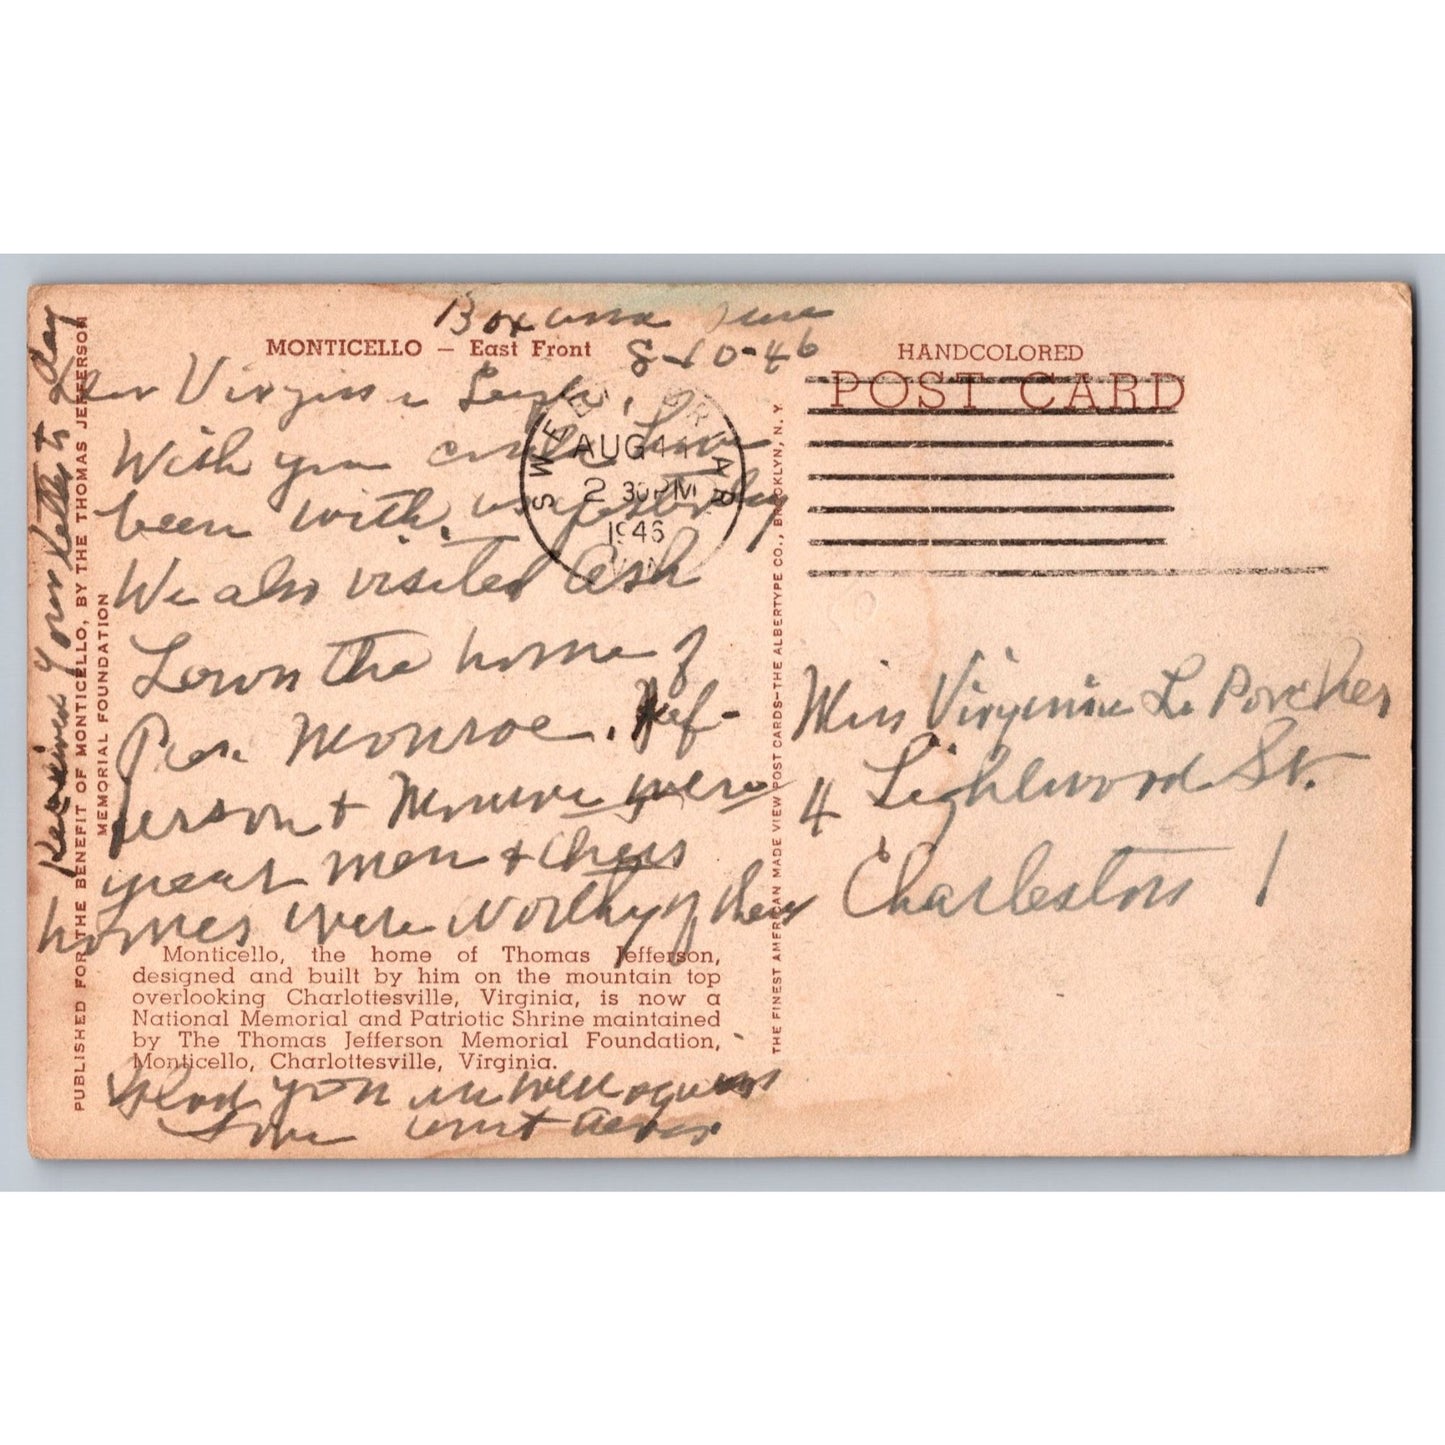 8-10-46
MONTICELLO – East Front
Dear Virginia
Wish you could have
been with us yesterday
We also visited Ash
Lawn the home of
Pres. Monroe. Jef-
ferson & Monroe were
great men & their
homes were worthy of them
Monticello, the home of Thomas Jefferson,
designed and built by him on the mountain top
overlooking Charlottesville, Virginia, is now a
National Memorial and Patriotic Shrine maintained
by The Thomas Jefferson Memorial Foundation,
Monticello, Charlottesville, Virginia.
Glad you are well again
Love Aunt
Received your letter to day
PUBLISHED FOR THE BENEFIT OF MONTICELLO, BY THE THOMAS JEFFERSON
MEMORIAL FOUNDATION
SWEET BRIAR
AUG
2 30 PM
1946
THE FINEST AMERICAN MADE VIEW POST CARDS—THE ALBERTYPE CO., BROOKLYN, N. Y.
HANDCOLORED
POST CARD
Miss Virginia Le Porcher
4 Lightwood St.
Charleston